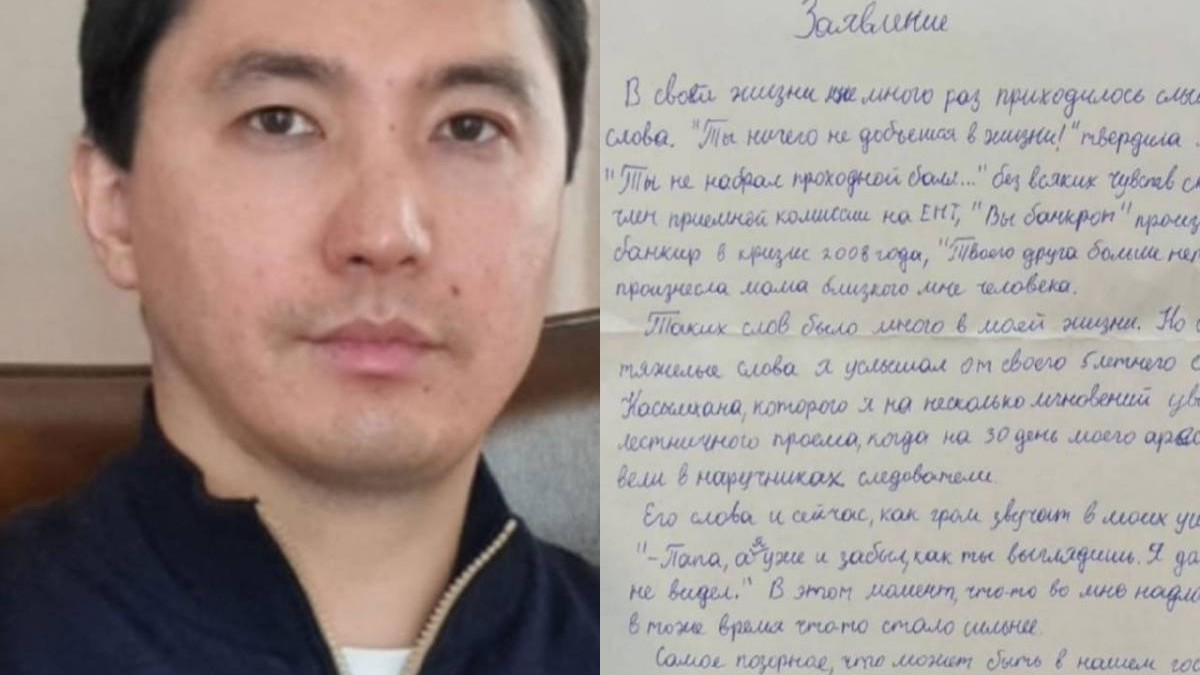 Заявление
В своей жизни мне много раз приходилось
слова. "Ты ничего не добьешся в жизни!" твердила
"Ты не набрал проходной балл..." без всяких чувств
член приемной комиссии на ЕНТ, "Вы банкрот"
банкир в кризис 2008 года, "Твоего друга больше нет
произнесла мама близкого мне человека.
Таких слов было много в моей жизни. Но
тяжелые слова я услышал от своего 5 летнего
Касымхана, которого я на несколько мгновений
лестничного проема, когда на 30 день моего
вели в наручниках следователи.
Его слова и сейчас, как гром звучат в моих
"-Папа, а я уже и забыл, как ты выглядишь. Я
не видел." В этот момент, что-то во мне
в тоже время что-то стало сильнее.
Самое позорное, что может быть в нашем